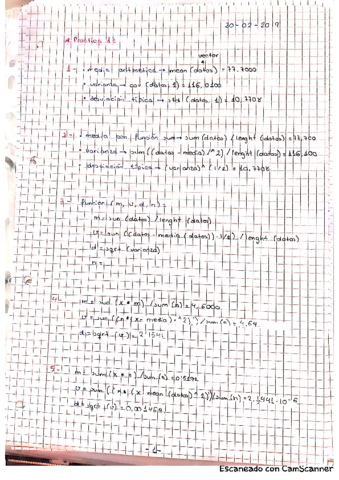 20-02-2019
* Práctica 1:
vector
1- • media aritmética → mean (datos) = 77,7000
• varianza → cov (datos, 1) = 116,0100
• desviación típica → std (datos, 1) = 10,7708
2- • media con función sum → sum (datos) / lenght (datos) = 77,700
• varianza → sum ((datos - media).^2) / lenght (datos) = 116,0100
desviación típica → (varianza)^(1/2) = 10,7708
3- function (m, v, d, n) =
m = sum (datos) / lenght (datos)
v = sum ((datos - media (datos)).^2) / lenght (datos)
d = sqrt (varianza)
n =
4- m = sum (x * n) / sum (n) = 4,6000
v = sum ((n * (x - media).^2)) / sum (n) = 4,64
d = sqrt (v) = 2,1541
5- m = sum (x * n) / sum (n) =
d = sqrt (v) =
-1-
Escaneado con CamScanner